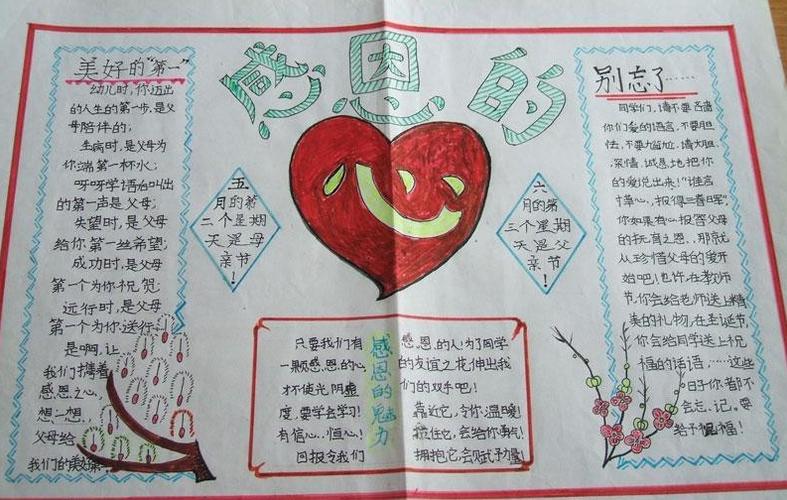 感恩的
心
美好的“第一”
幼儿时,你迈出
的人生的第一步,是父
母陪伴的;
生病时,是父母为
你端第一杯水;
呀呀学语,你叫出
的第一声是父母;
失望时,是父母
给你第一丝希望;
成功时,是父母
第一个为你祝贺;
远行时,是父母
第一个为你送行,
是啊,让
我们携着
感恩之心,
想一想,
父母给
我们的美好
五
月的第
二个星期
天是母
亲节!
六
月的第
三个星期
天是父
亲节!
感恩的魅力
只要我们有
一颗感恩的心
才不使光阴虚
度,要学会学习!
有信心、恒心!
回报令我们
感恩的人!为了同学
的友谊之花伸出我
们的双手吧!
靠近它,令你温暖!
抓住它,会给你勇气!
拥抱它,会赋予力量!
别忘了……
同学们,请不要吝啬
你们爱的语言,不要胆
怯,不要尴尬,请大胆、
深情、诚恳地把你
的爱说出来!“谁言
寸草心,报得三春晖”
你如果有心报答父母
的抚育之恩,那就
从珍惜父母的爱开
始吧!也许,在教师
节,你会给老师送上精
美的礼物,在圣诞节,
你会给同学送上祝
福的话语,……这些
日子你都不
会忘记。要
给予祝福!